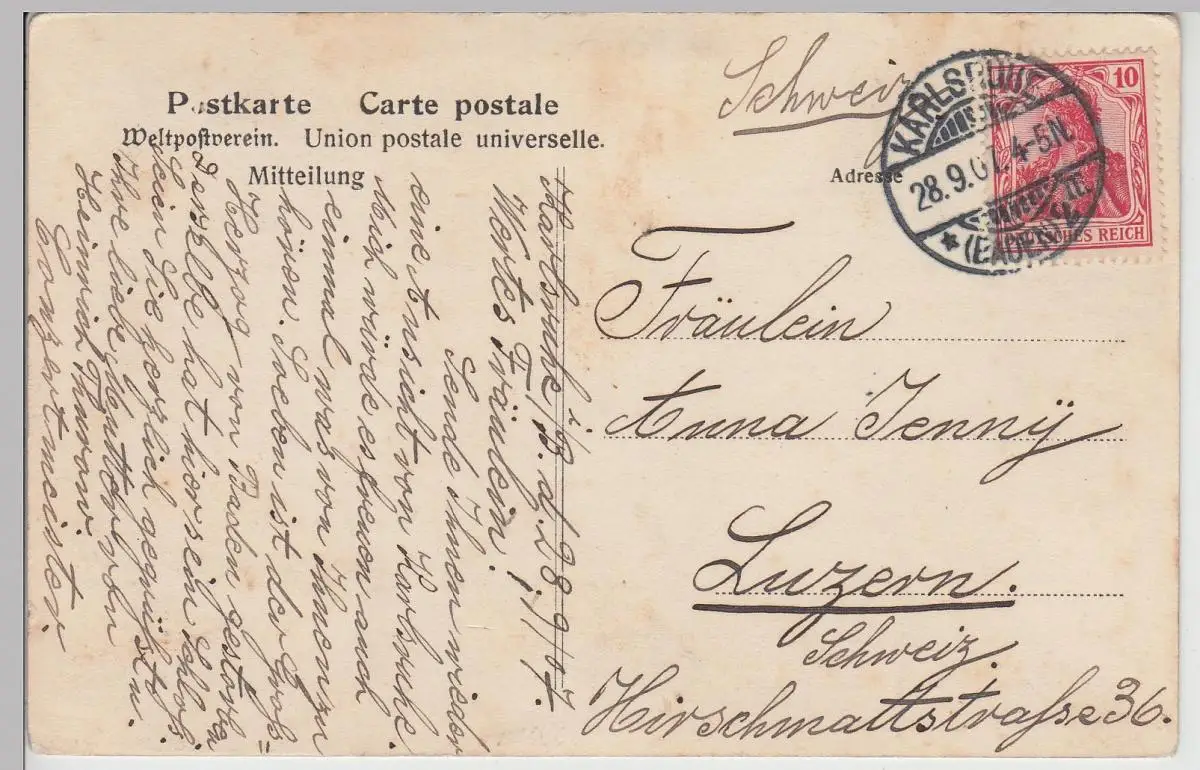 Postkarte Carte postale
Weltpostverein. Union postale universelle.
Mitteilung
Adresse
Schweiz
KARLSRUHE
28.9.07. 4-5N.
(BADEN)
10
DEUTSCHES REICH
Fräulein
Anna Jenny
Luzern.
Schweiz.
Hirschmattstraße 36.
Karlsruhe i/B. d/28 9/07.
Wertes Fräulein!
Sende Ihnen wieder
eine Ansicht von Karlsruhe.
Mich würde es freuen auch
einmal was von Ihnen zu
hören. Soeben ist der Groß=
Herzog von Baden gestorben
Derselbe hat hier sein Schloß.
Seien Sie herzlich gegrüßt u.
Ihre liebe Mutter von
Heinrich Thoran.
Konzertmeister.